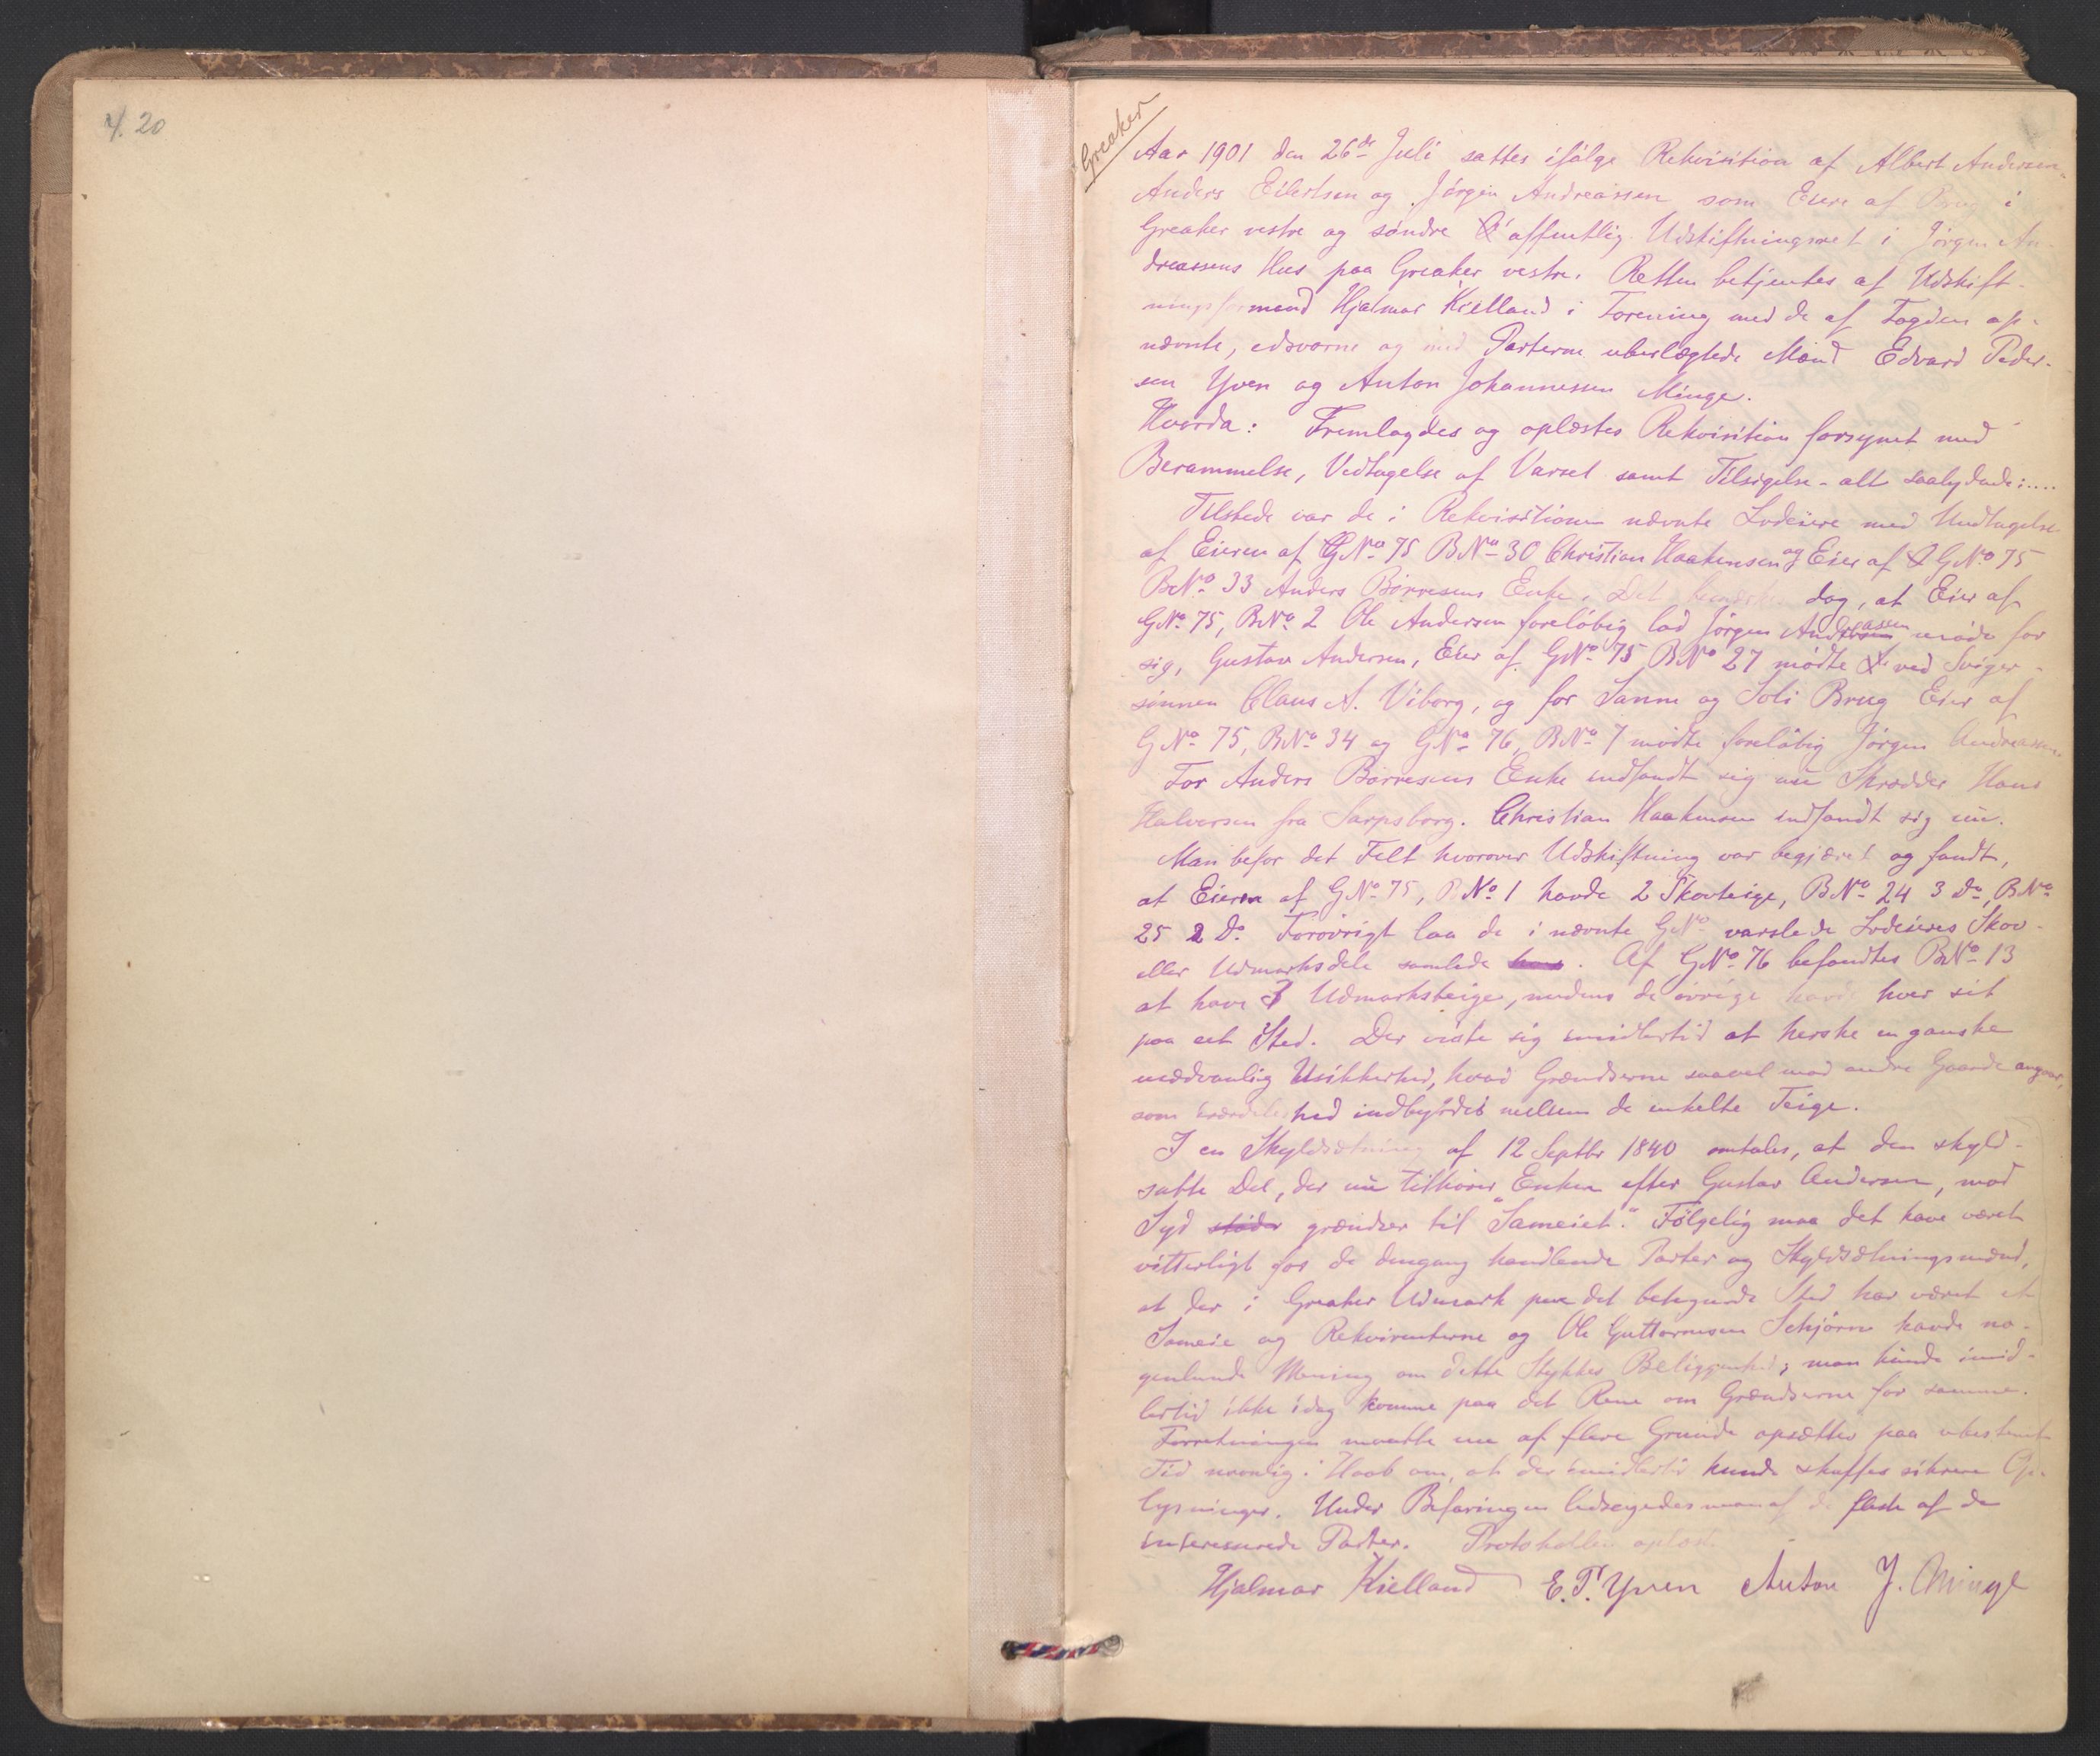 4. 20
Greaker
Aar 1901 den 26de Juli sattes ifølge Rekvisition af Albert Andersen,
Anders Eilertsen og Jørgen Andreassen som Eiere af Brug i
Greaker vestre og søndre offentlig Udskiftningsret i Jørgen An-
dreassens Hus paa Greaker vestre. Retten betjentes af Udskift-
ningsformand Hjalmar Kielland i Forening med de af Fogden op-
nævnte, edsvorne og med Parterne ubeslægtede Mænd Edvard Peder-
sen Yven og Anton Johannessen Minge.
Hvorda: Fremlagdes og oplæstes Rekvisition forsynet med
Berammelse, Vedtagelse af Varsel samt Tilsigelse - alt saalydende:....
Tilstede var de i Rekvisitionen nævnte Lodeiere med Undtagelse
af Eieren af GNo 75 BNo 30 Christian Haakensen og Eier af GNo 75
BNo 33 Anders Børresens Enke. Det bemærkes dog, at Eier af
GNo 75, BNo 2 Ole Andersen foreløbig lod Jørgen Andreassen møde for
sig, Gustav Andersen, Eier af GNo 75 BNo 27 mødte ved Sviger-
sønnen Claus A. Viborg, og for Sanne og Soli Brug Eier af
GNo 75, BNo 34 og GNo 76, BNo 7 mødte foreløbig Jørgen Andreassen.
For Anders Børresens Enke indfandt sig nu Skrædder Hans
Halvorsen fra Sarpsborg. Christian Haakensen indfandt sig nu.
Man befor det Felt hvorover Udskiftning var begjæret og fandt,
at Eieren af GNo 75, BNo 1 havde 2 Skovteige, BNo 24 3 Do, BNo
25 2 Do. Forøvrigt laa de i nævnte GNo varslede Lodeieres Skov-
eller Udmarksdele samlede. Af GNo 76 befandtes BNo 13
at have 3 Udmarksteige, medens de øvrige havde hver sit
paa eet Sted. Der viste sig imidlertid at herske en ganske
usædvanlig Usikkerhed, hvad Grændserne saavel mod andre Gaarde angaar,
som særdeleshed indbyrdes mellem de enkelte Teige.
I en Skyldsætning af 12 Septbr 1840 omtales, at den skyld-
satte Del, der nu tilhører Enken efter Gustav Andersen, mod
Syd støder grændser til "Sameiet." Følgelig maa det have været
vitterligt for de dengang handlende Parter og Skyldsætningsmænd,
at der i Greaker Udmark paa det betegnede Sted har været et
Sameie og Rekvirenterne og Ole Guttormsen Schjørn havde no-
genlunde Mening om dette Stykkes Beliggenhed; man kunde imid-
lertid ikke idag komme paa det Rene om Grændserne for samme.
Forretningen maatte nu af flere Grunde opsættes paa ubestemt
Tid navnlig i Haab om, at der imidlertid kunde skaffes sikrere Op-
lysninger. Under Befaringen ledsagedes man af de fleste af de
interesserede Parter. Protokollen oplæst.
Hjalmar Kielland E. P. Yven Anton J. Minge